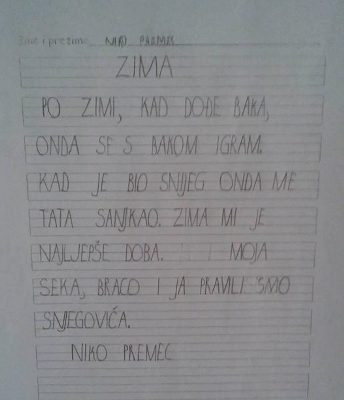 Ime i prezime NIKO PREMEC
ZIMA
PO ZIMI, KAD DOĐE BAKA,
ONDA SE S BAKOM IGRAM.
KAD JE BIO SNIJEG ONDA ME
TATA SANJKAO. ZIMA MI JE
NAJLJEPŠE DOBA. MOJA
SEKA, BRACO I JA PRAVILI SMO
SNJEGOVIĆA.
NIKO PREMEC